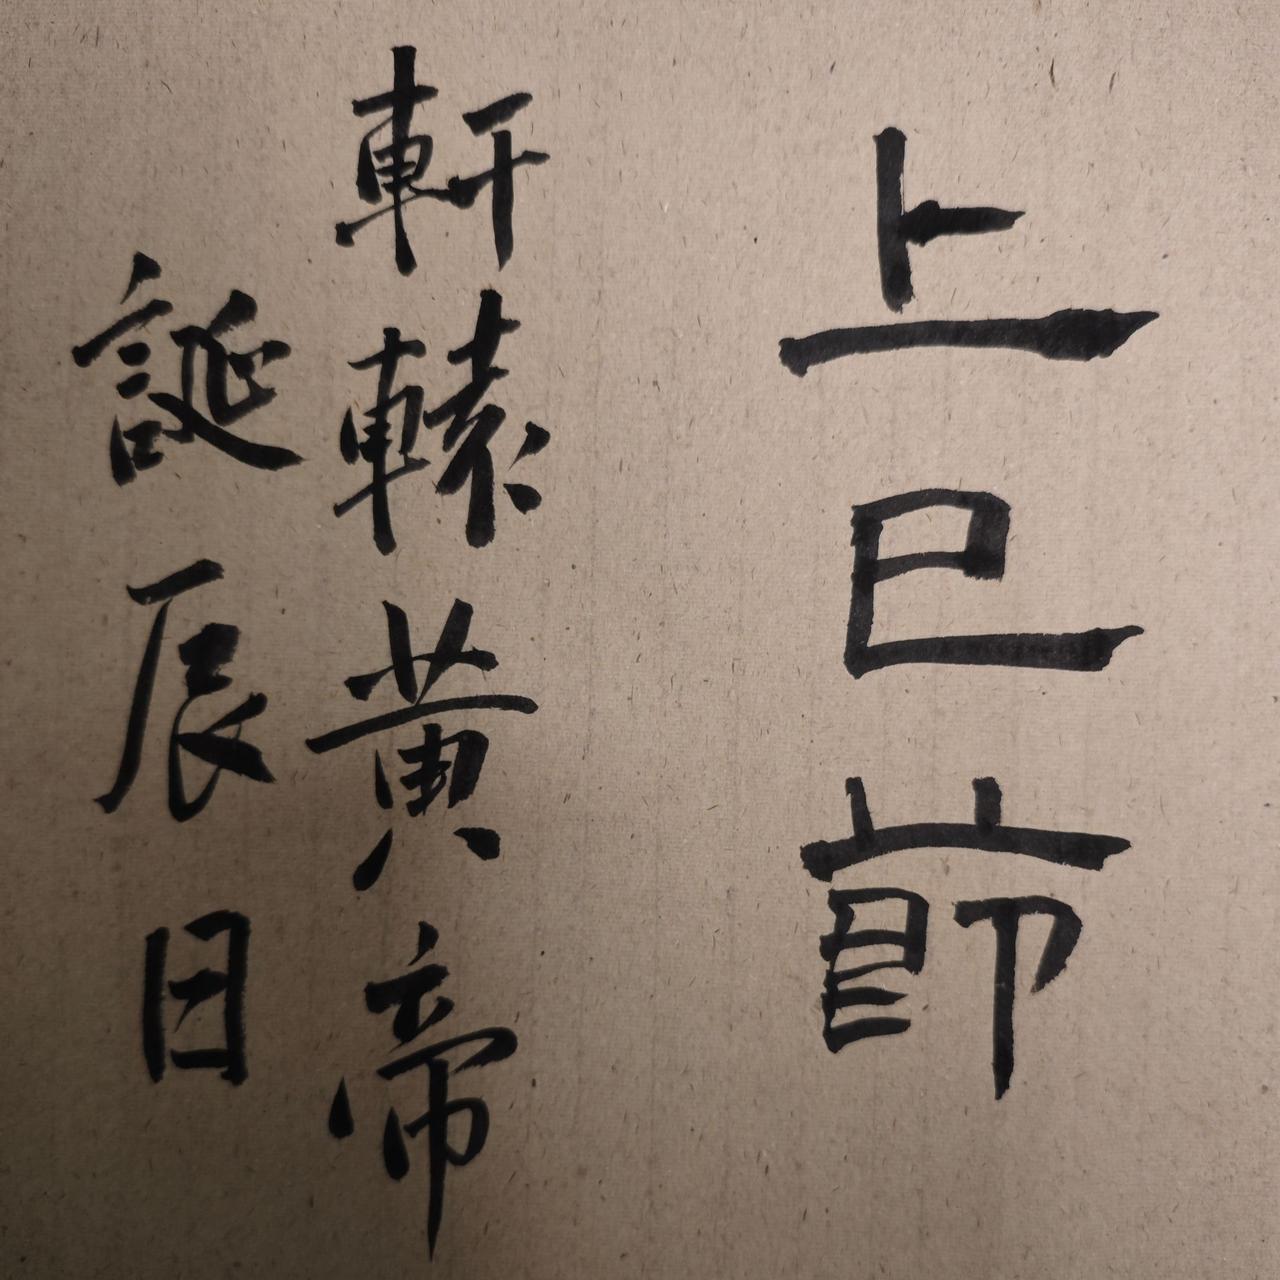 上巳節
軒轅黃帝
誕辰日